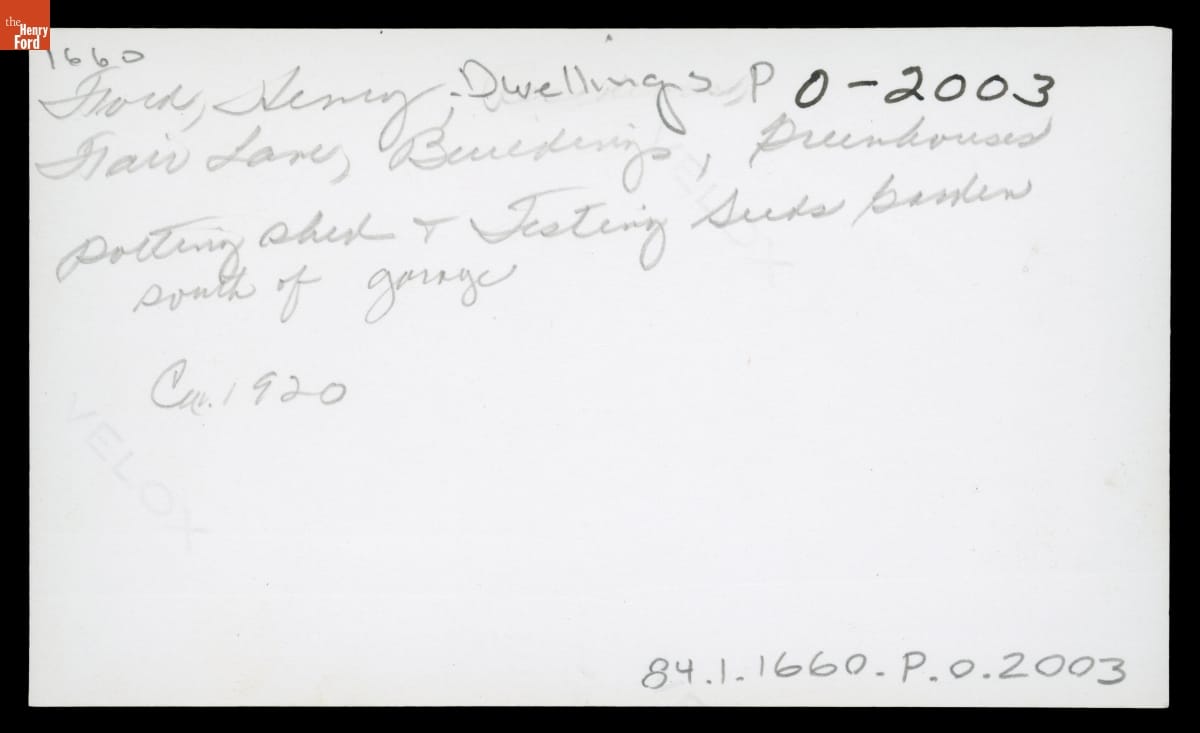 the
Henry
Ford
1660
Ford, Henry, -Dwellings P O-2003
Fair Lane, Buildings, Greenhouses
potting shed + Testing Seeds Garden
south of garage
Ca. 1920
VELOX
84.1.1660.P.O.2003